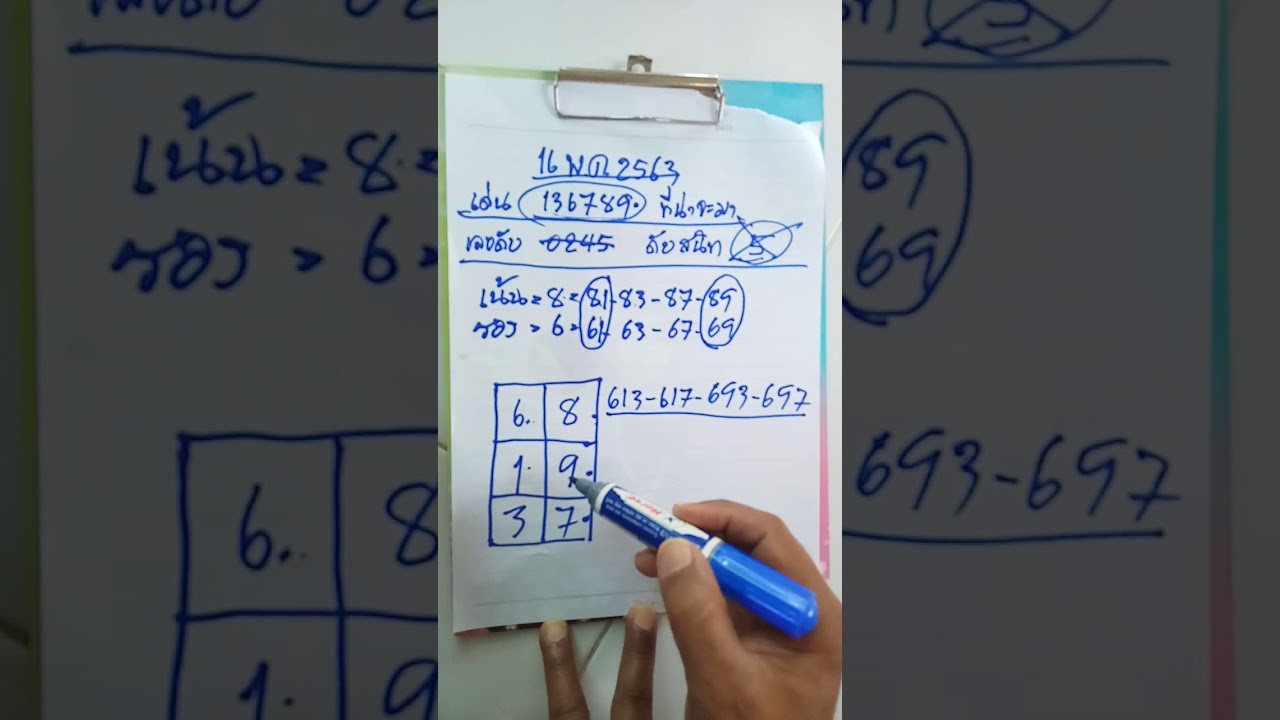 16 พ.ย. 2563
เด่น 136789 ที่น่าจะมา
เลขดับ 0245 ดับสนิท 5
เน้น = 8 = 81-83-87-89
รอง = 6 = 61-63-67-69
613-617-693-697
6 8
1 9
3 7
Horse